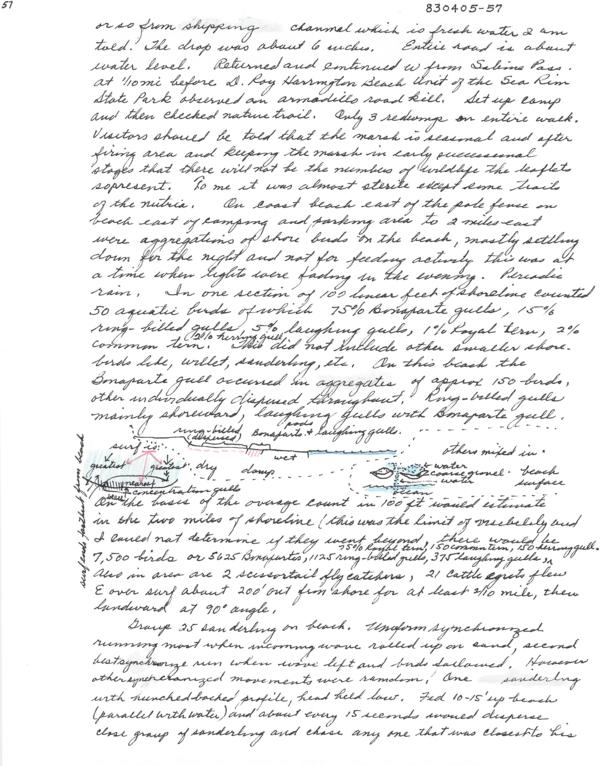 57
830405-57
or so from shipping channel which is fresh water I am
told. The drop was about 6 inches. Entire road is about
water level. Returned and continued W from Sabine Pass.
At 4/10 mi before D. Roy Harrington Beach Unit of the Sea Rim
State Park observed an armadillo road kill. Set up camp
and then checked nature trail. Only 3 redwings on entire walk.
Visitors should be told that the marsh is seasonal and after
firing area and keeping the marsh in early successional
stages that there will not be the numbers of wildlife the leaflets
so present. To me it was almost sterile except some trails
of the nutria. On coast beach east of the pole fense on
beach east of camping and parking area to 2 miles east
were aggregations of shore birds on the beach, mostly settling
down for the night and not for feeding activity this was at
a time when lights were fading in the evening. Periodic
rain. In one section of 100 linear feet of shoreline counted
50 aquatic birds of which 75% Bonaparte gulls, 15%
ring-billed gulls, 5% laughing gulls, 1% Royal tern, 2%
common tern. 2% herring gull. This did not include other smaller shore-
birds like, willet, sanderling, etc. On this beach the
Bonaparte gull occurred in aggregates of approx 150 birds,
other individually dispersed throughout, Ring-billed gulls
mainly shoreward, laughing gulls with Bonaparte gull.
ring-billed (dispersed) Bonaparte + laughing gulls. pods
surf is
greatest greatest dry damp wet
nearest
concentration gulls
surf ends farthest from beach
others mixed in.
water
coarse gravel - beach
surface
ocean
On the basis of the average count in 100 ft would estimate
in the two miles of shoreline (this was the limit of visibility and
I could not determine if they went beyond, there would be
75% Royal tern, 150 common tern, 150 herring gull.
7,500 birds or 5625 Bonapartes, 1125 ring-billed gulls, 375 laughing gulls,
Also in area are 2 scissortail flycatchers, 21 Cattle egrets flew
E over surf about 200' out from shore for at least 2/10 mile, then
landward at 90° angle.
Group 25 sanderling on beach. Uniform synchronized
running most when incoming wave rolled up on sand, second
best synchronize run when wave left and birds followed. However
other synchronized movements were random. One sanderling
with hunched-backed profile, head held low. Fed 10-15' up beach
(parallel with water) and about every 15 seconds would disperse
close group of sanderling and chase any one that was closest to his